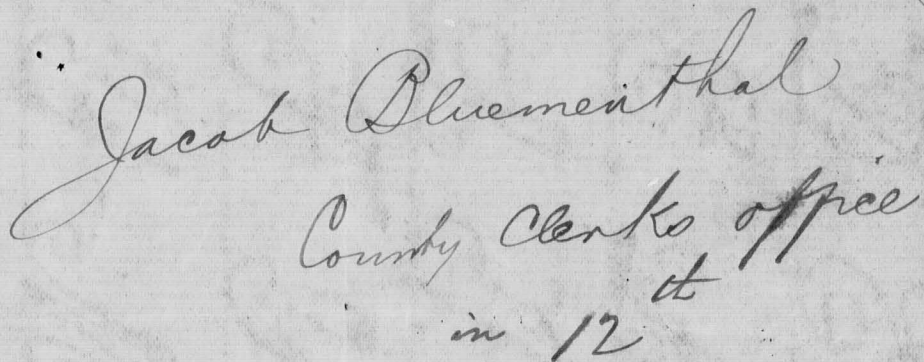 Jacob Bluementhal
County Clerks office
in 12th